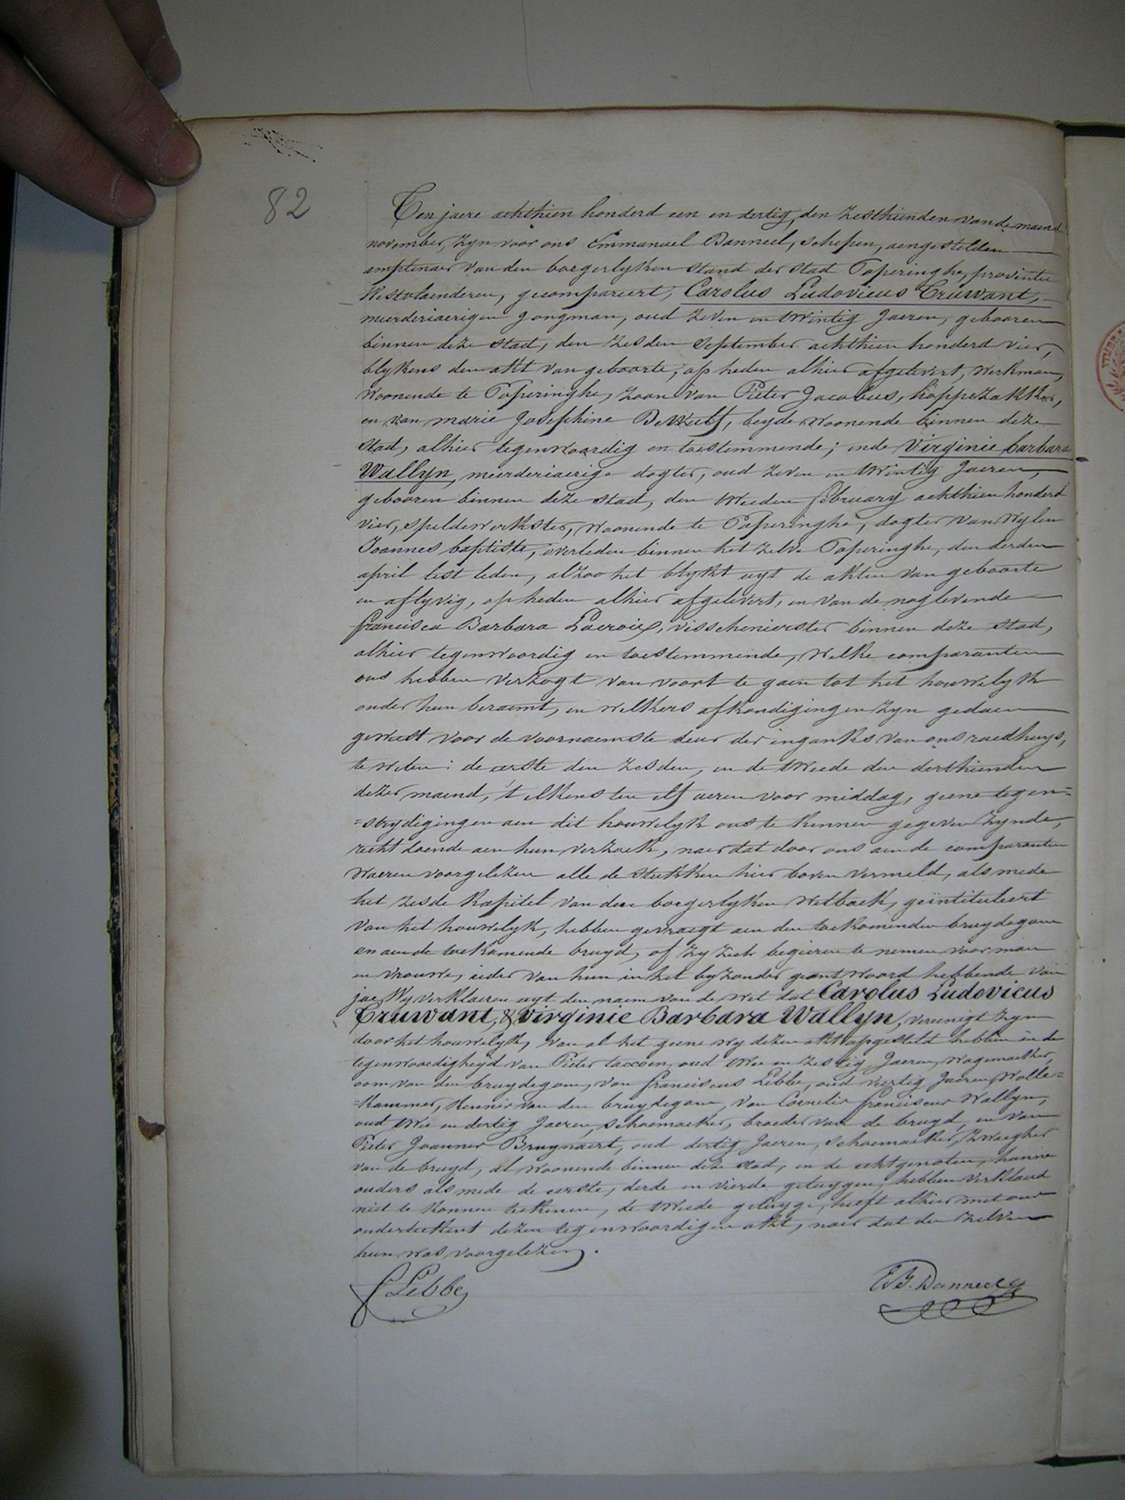 82
Ten jaere achthien honderd een en dertig, den zesthienden van de maend
november, zyn voor ons Emmanuel Banneel, schepen, aengestelden
amptenaer van den borgerlyken stand der stad Poperinghe, provintie
Westvlaenderen, gecompareert, Carolus Ludovicus Cruwant,
meerderiaerigen jongman, oud zeven en twintig Jaeren, gebooren
binnen deze stad, den zesden September achthien honderd vier,
blykens den akt van geboorte, op heden alhier afgelevert, werkman,
woonende te Poperinghe, zoon van Pieter Jacobus, hoppezakker,
en van marie Josephine Dewulf, beyde woonende binnen deze
stad, alhier tegenwoordig en toestemmende; ende Virginie barbara
Wallyn, meerderiaerige dogter, oud zeven en twintig Jaeren,
gebooren binnen deze stad, den tweeden february achthien honderd
vier, speldewerkster, woonende te Poperinghe, dogter van wylen
Joannes baptiste, overleden binnen het zelve Poperinghe, den derden
april lest leden, alzoo het blykt uyt de akten van geboorte
en aflyvig, op heden alhier afgelevert, en van de naglevende
francisca Barbara Lacroix, visschenierster binnen deze stad,
alhier tegenwoordig en toestemmende, welke comparanten
ons hebben verzogt van voort te gaen tot het houwelyk
onder hun beraemt, en welkers afkondigingen zyn gedaen
geweest voor de voornaemste deur der ingank van ons raedhuys,
te weten: de eerste den zesden, en de tweede den derthienden
dezer maend, 't elkens ten elf uren voor middag, geene tegen=
=strydigingen aen dit houwelyk ons te kennen gegeven zynde,
recht doende aen hun verzoek, naer dat door ons aen de comparanten
waeren voorgelezen alle de stukken hier boven vermeld, als mede
het zesde kapitel van den borgerlyken wetboek, geintituleert
van het houwelyk, hebben gevraegt aen den toekomenden bruydegom
en aen de toekomende bruyd, of zy zich begieren te nemen voor man
en vrouwe, ieder van hun in het byzonder geantwoord hebbende van
jae, Wy verklaeren uyt den naem van de wet dat Carolus Ludovicus
Cruwant, & Virginie Barbara Wallyn, vereenigt zyn
door het houwelyk, van al het geene wy dezen akt opgesteld hebben in de
tegenwoordigheyd van Pieter taccoen, oud twee en zestig Jaeren, wagemaeker,
oom van den bruydegom, van franciscus Lebbe, oud viertig Jaeren, wolle=
=kammer, kennis van den bruydegom, van Cornelis franciscus Wallyn,
oud twee en dertig Jaeren, schoemaeker, broeder van de bruyd, en van
Pieter Joannes Bruynaert, oud dertig Jaeren, schoemaeker, zwaegher
van de bruyd, al woonende binnen deze stad, en de echtgenoten, hunne
ouders als mede de eerste, derde en vierde getuygen, hebben verklaerd
niet te konnen teekenen, de tweede getuyge, heeft alhier met ons
onderteekent dezen tegenwoordigen akt, naer dat den zelven
hun was voorgelezen.
f Lebbe
E B. Banneel